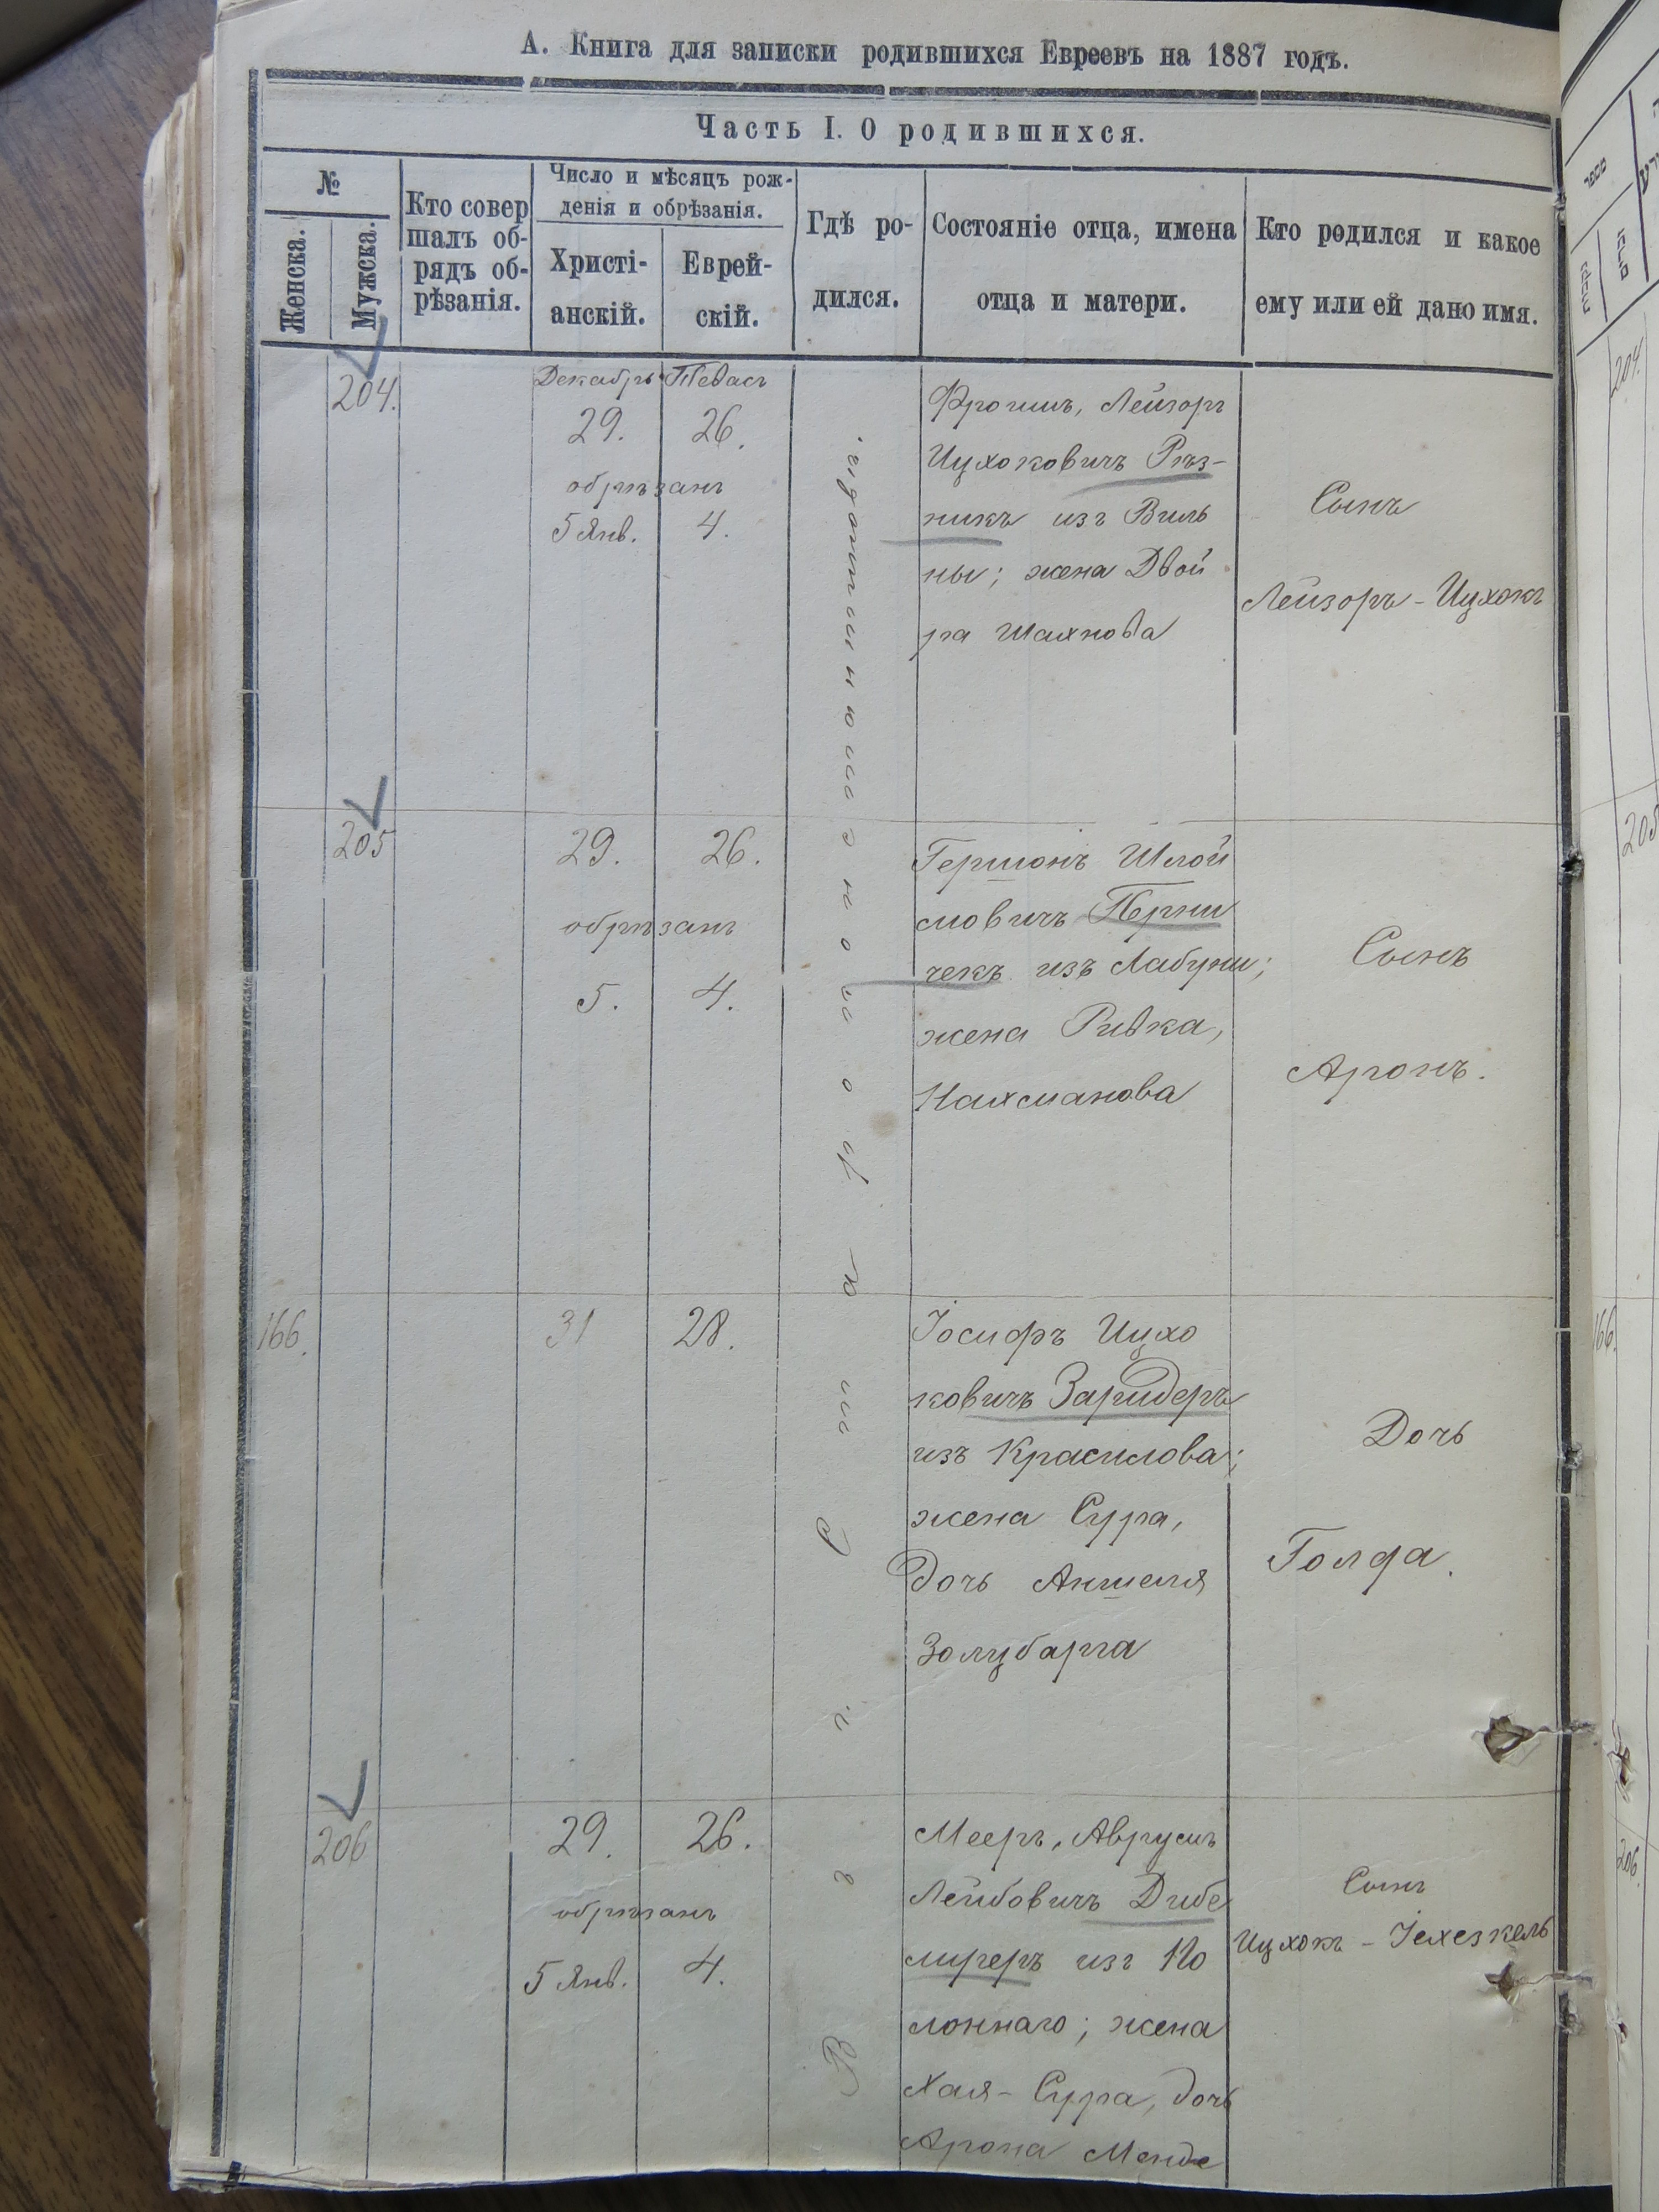 А. Книга для записки родившихся Евреевъ на 1887 годъ.
Часть I. О родившихся.
№
Женска.
Мужска.
Кто совер
шалъ об-
рядъ об-
рѣзанія.
Число и мѣсяцъ рож-
денія и обрѣзанія.
Христі-
анскій.
Еврей-
скій.
Гдѣ ро-
дился.
Состояніе отца, имена
отца и матери.
Кто родился и какое
ему или ей дано имя.
204.
Декабрь
29.
26.
обрѣзанъ
5 Янв.
4.
Фроимъ, Лейзоръ
Ицхоковичъ Рѣз-
никъ изъ Виль
ны; жена Двой
ра Шахнова
Сынъ
Лейзоръ - Ицхокъ
205
29.
26.
обрѣзанъ
5.
4.
Гершонъ Шлой
мовичъ
чекъ изъ Лабунь;
жена Ривка,
Нахманова
Сынъ
Аронъ.
166.
31
28.
Іосифъ Ицхо
ковичъ Зарудеръ
изъ Красилова;
жена Сура,
дочь Аншеля
Золцбарга
Дочь
Голда.
206
29.
26.
обрѣзанъ
5 Янв.
4.
Мееръ, Аврумъ
Лейбовичъ
изъ По
лоннаго; жена
Хая - Сура, дочь
Арона Менде
Сынъ
Ицхокъ - Іехезкель
204.
205
166.
206.